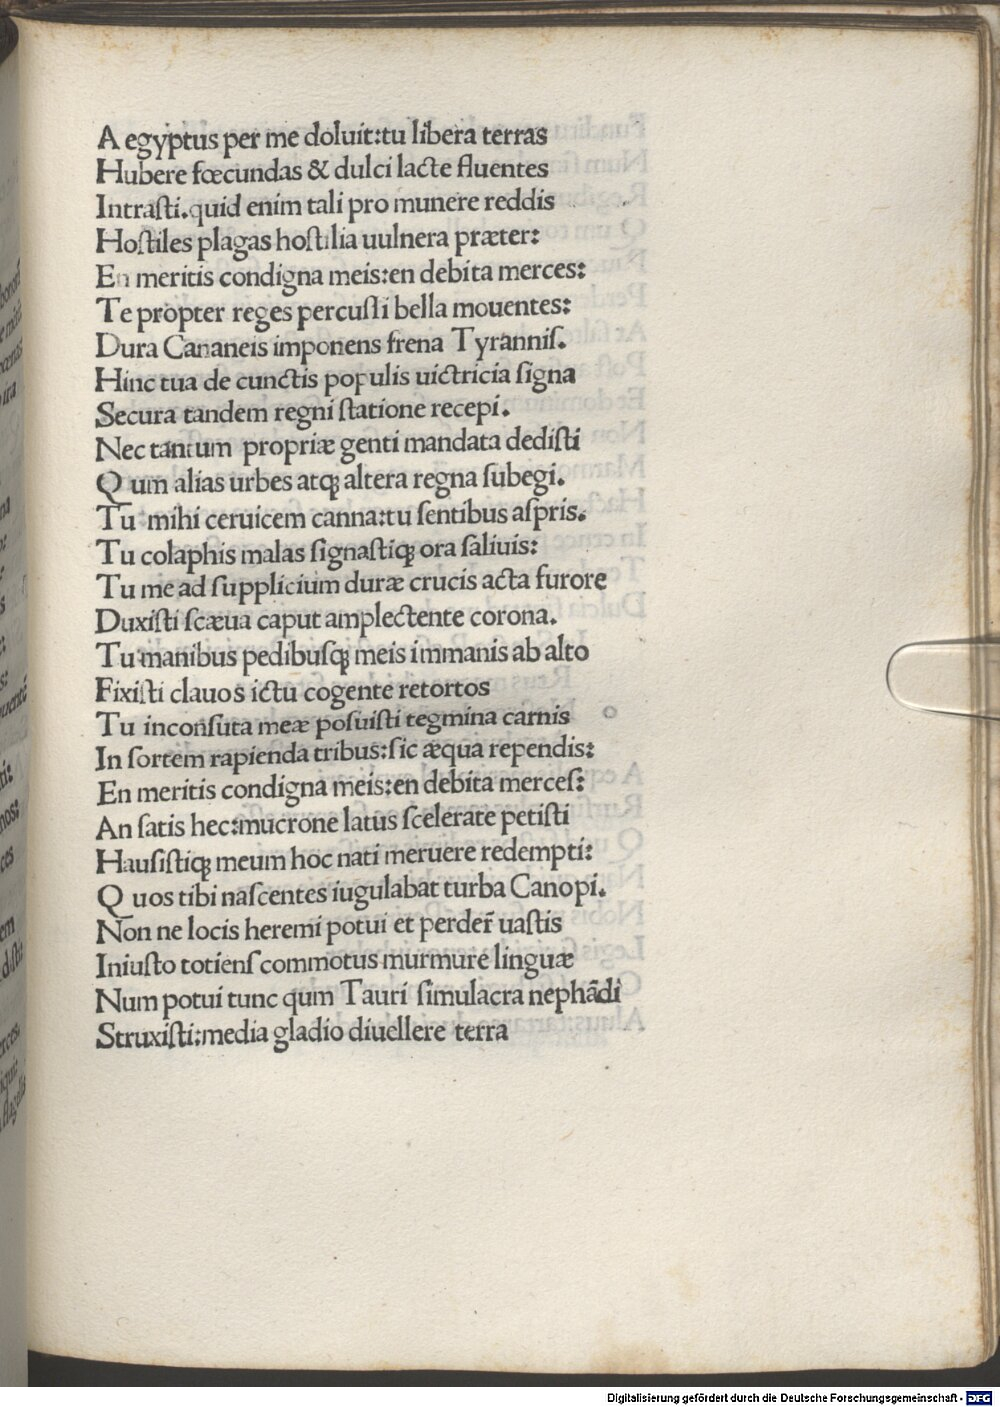 A egyptus per me doluit:tu libera terras
Hubere fœcundas & dulci lacte fluentes
Intraſti.quid enim tali pro munere reddis
Hoſtiles plagas hoſtilia uulnera præter:
En meritis condigna meis:en debita merces:
Te propter reges percuſſi bella mouentes:
Dura Cananeis imponens frena Tyranniſ.
Hinc tua de cunctis populis uictricia ſigna
Secura tandem regni ſtatione recepi.
Nec tantum propriæ genti mandata dediſti
Q um alias urbes atꝗ altera regna ſubegi.
Tu mihi ceruicem canna:tu ſentibus aſpris.
Tu colaphis malas ſignaſtiꝗ ora ſaliuis:
Tu me ad ſupplicium duræ crucis acta furore
Duxiſti ſcæua caput amplectente corona.
Tu manibus pedibuſꝗ meis immanis ab alto
Fixiſti clauos ictu cogente retortos
Tu inconſuta meæ poſuiſti tegmina carnis
In ſortem rapienda tribus:ſic æqua rependis:
En meritis condigna meis:en debita merceſ:
An ſatis hec:mucrone latus ſcelerate petiſti
Hauſiſtiꝗ meum hoc nati meruere redempti:
Q uos tibi naſcentes iugulabat turba Canopi.
Non ne locis heremi potui et perder̃ uaſtis
Iniuſto totienſ commotus murmure linguæ
Num potui tunc qum Tauri ſimulacra nephãdi
Struxiſti:media gladio diuellere terra
Digitalisierung gefördert durch die Deutsche Forschungsgemeinschaft - DFG